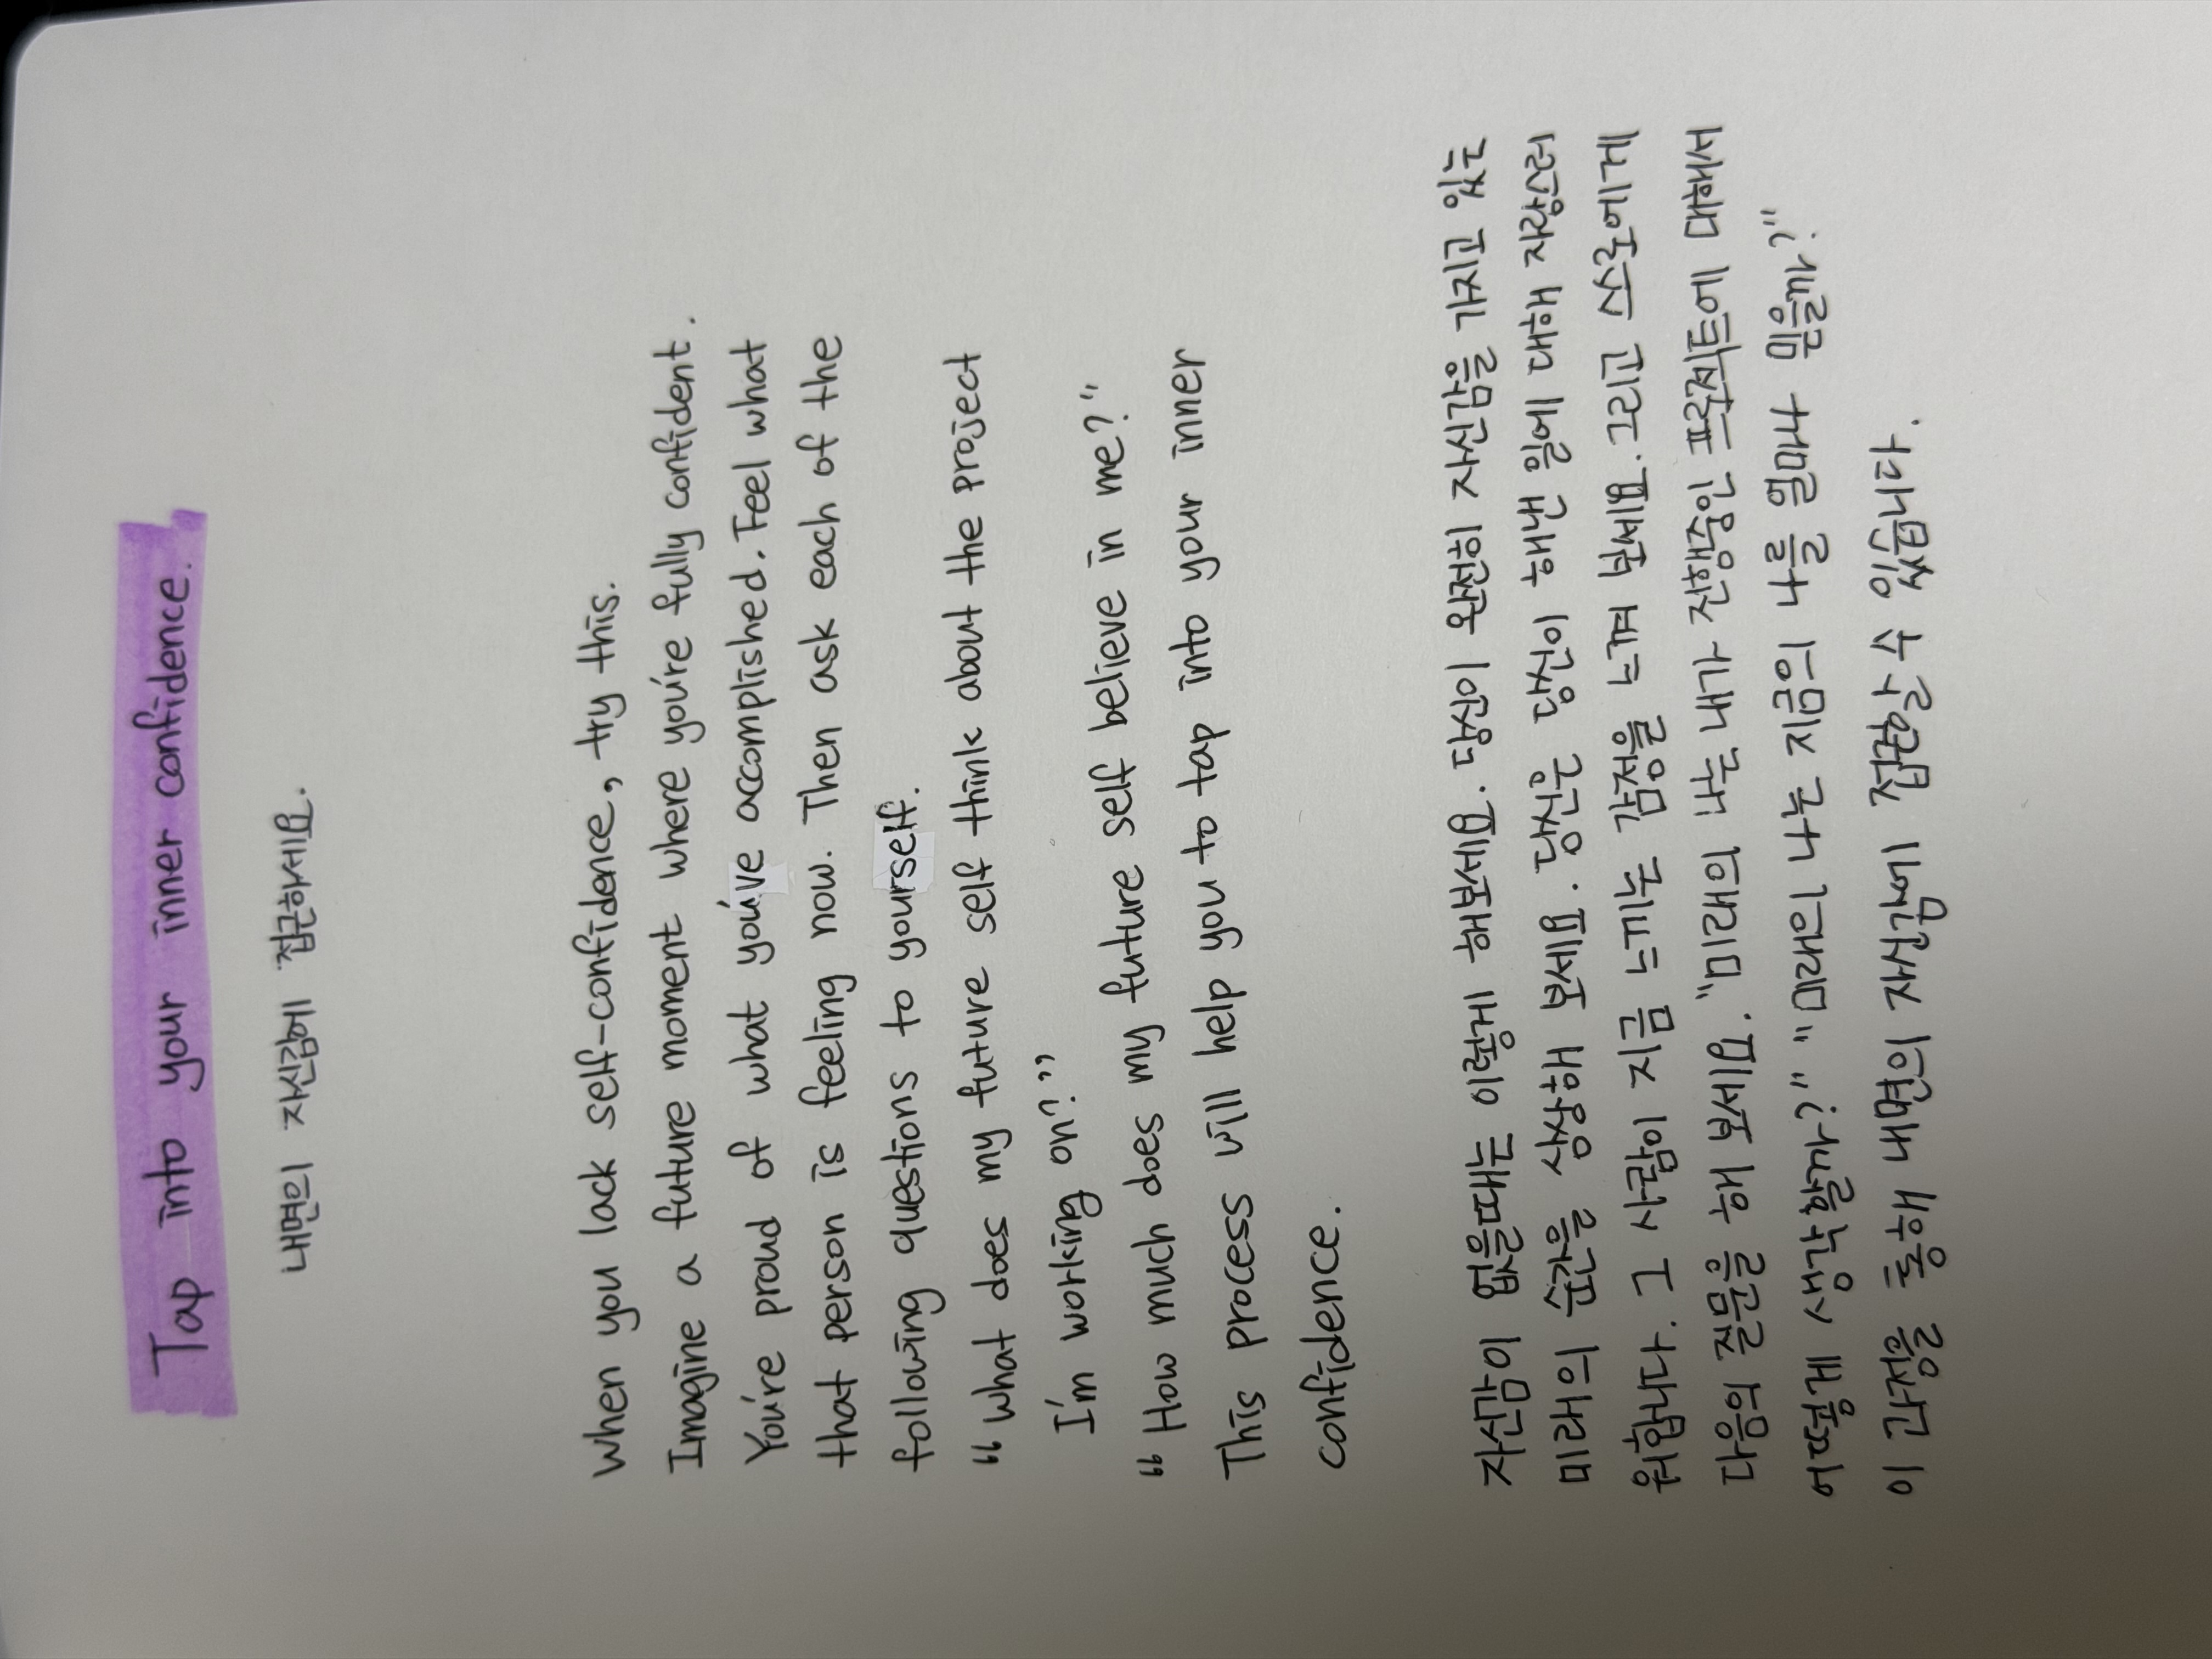 Tap into your inner confidence.
내면의 자신감에 접근하세요.
When you lack self-confidence, try this.
Imagine a future moment where you're fully confident.
You're proud of what you've accomplished. Feel what
that person is feeling now. Then ask each of the
following questions to yourself.
"What does my future self think about the project
I'm working on?"
"How much does my future self believe in me?"
This process will help you to tap into your inner
confidence.
자신감이 부족할 때는 이렇게 해보세요. 당신이 완전히 자신감을 가지고 있는
미래의 순간을 상상해 보세요. 당신은 당신이 해낸 일에 대해 자랑스러
워합니다. 그 사람이 지금 느끼는 감정을 느껴 보세요. 그리고 스스로에게
다음의 질문들을 해 보세요. "미래의 나는 내가 진행 중인 프로젝트에 대해
어떻게 생각할까?" "미래의 나는 나를 얼마나 믿을까?"
이 과정을 통해 내면의 자신감에 접근할 수 있습니다.